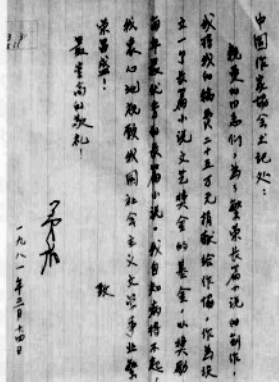 中国作家协会书记处：
亲爱的同志们，为了繁荣长篇小说的创作，
我将我的稿费二十五万元捐献给作协，作为设
立一个长篇小说文艺奖金的基金，以奖励
每年最优秀的长篇小说。我自知病将不起，
我衷心地祝愿我国社会主义文学事业繁
荣昌盛！
致
最崇高的敬礼！
茅盾
一九八一年三月十四日